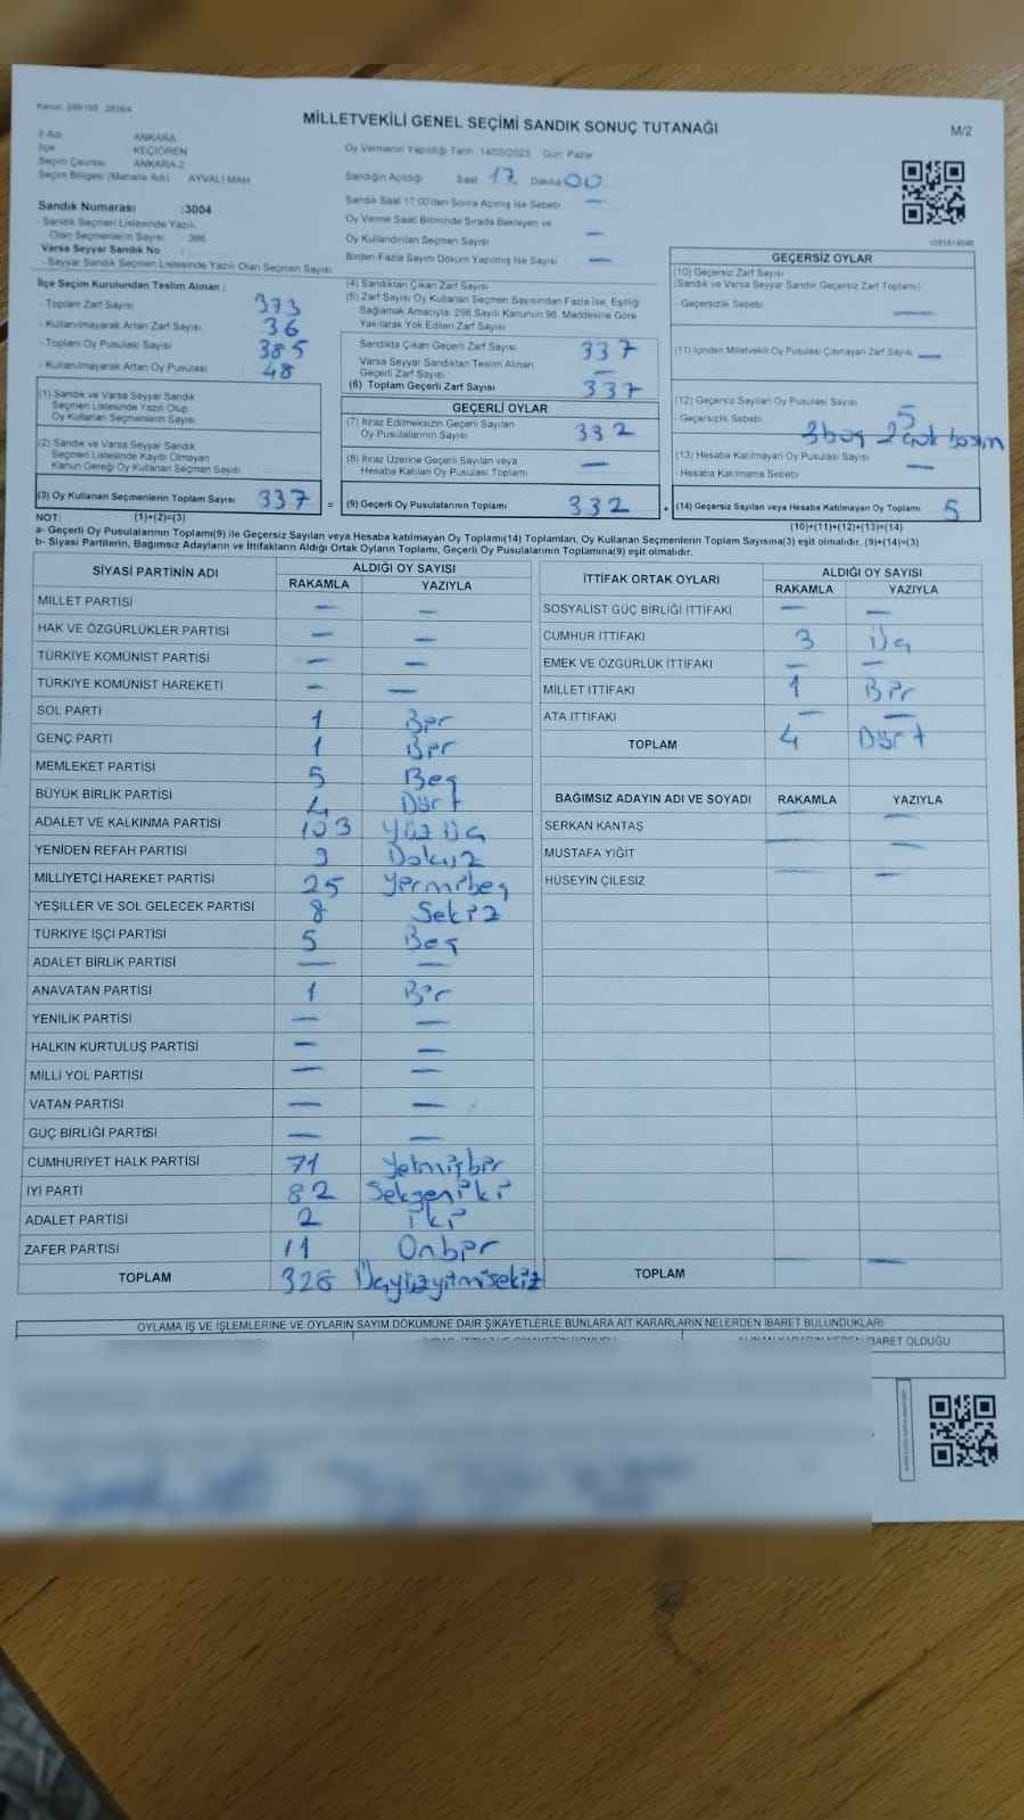 MİLLETVEKİLİ GENEL SEÇİMİ SANDIK SONUÇ TUTANAĞI
M/2
İl Adı : ANKARA
İlçe : KEÇİÖREN
Seçim Çevresi : ANKARA-2
Seçim Bölgesi (Mahalle Adı) : AYVALI MAH
Sandık Numarası :3004
- Sandık Seçmen Listesinde Yazılı
Olan Seçmenlerin Sayısı :
Varsa Seyyar Sandık No :
- Seyyar Sandık Seçmen Listesinde Yazılı Olan Seçmen Sayısı
Oy Vermenin Yapıldığı Tarih: 14/05/2023 Gün: Pazar
Sandığın Açıldığı Saat 17 Dakika 00
Sandık Saat 17:00'den Sonra Açılmış İse Sebebi —
Oy Verme Saati Bitiminde Sırada Bekleyen ve
Oy Kullandırılan Seçmen Sayısı —
Birden Fazla Sayım Döküm Yapılmış İse Sayısı —
İlçe Seçim Kurulundan Teslim Alınan :
- Toplam Zarf Sayısı 373
- Kullanılmayarak Artan Zarf Sayısı 36
- Toplam Oy Pusulası Sayısı 385
- Kullanılmayarak Artan Oy Pusulası 48
(1) Sandık ve Varsa Seyyar Sandık
Seçmen Listesinde Yazılı Olup
Oy Kullanan Seçmenlerin Sayısı
(2) Sandık ve Varsa Seyyar Sandık
Seçmen Listesinde Kayıtlı Olmayan
Kanun Gereği Oy Kullanan Seçmen Sayısı
(3) Oy Kullanan Seçmenlerin Toplam Sayısı 337 =
(4) Sandıktan Çıkan Zarf Sayısı
(5) Zarf Sayısı Oy Kullanan Seçmen Sayısından Fazla İse, Eşitliği
Sağlamak Amacıyla, 298 Sayılı Kanunun 98. Maddesine Göre
Yakılarak Yok Edilen Zarf Sayısı
Sandıkta Çıkan Geçerli Zarf Sayısı 337
Varsa Seyyar Sandıktan Teslim Alınan
Geçerli Zarf Sayısı —
(6) Toplam Geçerli Zarf Sayısı 337
GEÇERLİ OYLAR
(7) İtiraz Edilmeksizin Geçerli Sayılan
Oy Pusulalarının Sayısı 332
(8) İtiraz Üzerine Geçerli Sayılan veya
Hesaba Katılan Oy Pusulası Toplamı —
(9) Geçerli Oy Pusulalarının Toplamı 332 +
GEÇERSİZ OYLAR
(10) Geçersiz Zarf Sayısı
(Sandık ve Varsa Seyyar Sandık Geçersiz Zarf Toplamı)
- Geçersizlik Sebebi —
(11) İçinden Milletvekili Oy Pusulası Çıkmayan Zarf Sayısı —
(12) Geçersiz Sayılan Oy Pusulası Sayısı 5
- Geçersizlik Sebebi: 3 boş 2 çok basım
(13) Hesaba Katılmayan Oy Pusulası Sayısı —
- Hesaba Katılmama Sebebi
(14) Geçersiz Sayılan veya Hesaba Katılmayan Oy Toplamı 5
NOT: (1)+(2)=(3)
(10)+(11)+(12)+(13)=(14)
a- Geçerli Oy Pusulalarının Toplamı(9) ile Geçersiz Sayılan veya Hesaba katılmayan Oy Toplamı(14) Toplamları, Oy Kullanan Seçmenlerin Toplam Sayısına(3) eşit olmalıdır. (9)+(14)=(3)
b- Siyasi Partilerin, Bağımsız Adayların ve İttifakların Aldığı Ortak Oyların Toplamı, Geçerli Oy Pusulalarının Toplamına(9) eşit olmalıdır.
SİYASİ PARTİNİN ADI ALDIĞI OY SAYISI
RAKAMLA YAZIYLA
MİLLET PARTİSİ — —
HAK VE ÖZGÜRLÜKLER PARTİSİ — —
TÜRKİYE KOMÜNİST PARTİSİ — —
TÜRKİYE KOMÜNİST HAREKETİ — —
SOL PARTİ 1 Bir
GENÇ PARTİ 1 Bir
MEMLEKET PARTİSİ 5 Beş
BÜYÜK BİRLİK PARTİSİ 4 Dört
ADALET VE KALKINMA PARTİSİ 103 Yüz Üç
YENİDEN REFAH PARTİSİ 9 Dokuz
MİLLİYETÇİ HAREKET PARTİSİ 25 Yirmibeş
YEŞİLLER VE SOL GELECEK PARTİSİ 8 Sekiz
TÜRKİYE İŞÇİ PARTİSİ 5 Beş
ADALET BİRLİK PARTİSİ — —
ANAVATAN PARTİSİ 1 Bir
YENİLİK PARTİSİ — —
HALKIN KURTULUŞ PARTİSİ — —
MİLLİ YOL PARTİSİ — —
VATAN PARTİSİ — —
GÜÇ BİRLİĞİ PARTİSİ — —
CUMHURİYET HALK PARTİSİ 71 Yetmişbir
İYİ PARTİ 82 Sekseniki
ADALET PARTİSİ 2 İki
ZAFER PARTİSİ 11 Onbir
TOPLAM 328 Üçyüzyitmisekiz
İTTİFAK ORTAK OYLARI ALDIĞI OY SAYISI
RAKAMLA YAZIYLA
SOSYALİST GÜÇ BİRLİĞİ İTTİFAKI — —
CUMHUR İTTİFAKI 3 Üç
EMEK VE ÖZGÜRLÜK İTTİFAKI — —
MİLLET İTTİFAKI 1 Bir
ATA İTTİFAKI — —
TOPLAM 4 Dört
BAĞIMSIZ ADAYIN ADI VE SOYADI RAKAMLA YAZIYLA
SERKAN KANTAŞ — —
MUSTAFA YİĞİT — —
HÜSEYİN ÇİLESİZ — —
TOPLAM — —
OYLAMA İŞ VE İŞLEMLERİNE VE OYLARIN SAYIM DÖKÜMÜNE DAİR ŞİKAYETLERLE BUNLARA AİT KARARLARIN NELERDEN İBARET BULUNDUKLARI
OLDUĞU